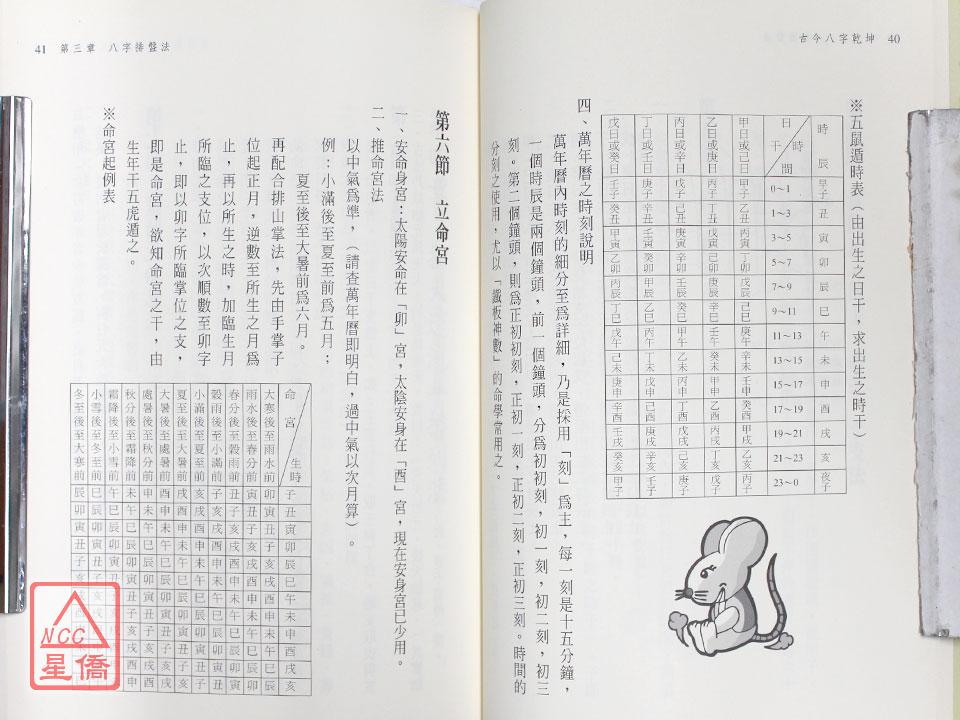 古今八字乾坤 40
※五鼠遁時表（由出生之日干，求出生之時干）
時辰 早子 丑 寅 卯 辰 巳 午 未 申 酉 戌 亥 夜子
日干 時間 0~1 1~3 3~5 5~7 7~9 9~11 11~13 13~15 15~17 17~19 19~21 21~23 23~0
甲日或己日 甲子 乙丑 丙寅 丁卯 戊辰 己巳 庚午 辛未 壬申 癸酉 甲戌 乙亥 丙子
乙日或庚日 丙子 丁丑 戊寅 己卯 庚辰 辛巳 壬午 癸未 甲申 乙酉 丙戌 丁亥 戊子
丙日或辛日 戊子 己丑 庚寅 辛卯 壬辰 癸巳 甲午 乙未 丙申 丁酉 戊戌 己亥 庚子
丁日或壬日 庚子 辛丑 壬寅 癸卯 甲辰 乙巳 丙午 丁未 戊申 己酉 庚戌 辛亥 壬子
戊日或癸日 壬子 癸丑 甲寅 乙卯 丙辰 丁巳 戊午 己未 庚申 辛酉 壬戌 癸亥 甲子
四、萬年曆之時刻說明
萬年曆內時刻的細分至為詳細，乃是採用「刻」為主，每一刻是十五分鐘，
一個時辰是兩個鐘頭，前一個鐘頭，分為初初刻，初一刻，初二刻，初三
刻。第二個鐘頭，則為正初初刻，正初一刻，正初二刻，正初三刻。時間的
分刻之使用，尤以「鐵板神數」的命學常用之。
41 第三章 八字排盤法
第六節 立命宮
一、安命身宮：太陽安命在「卯」宮，太陰安身在「酉」宮，現在安身宮已少用。
二、推命宮法
以中氣為準，（請查萬年曆即明白，過中氣以次月算）。
例：小滿後至夏至前為五月；
夏至後至大暑前為六月。
再配合排山掌法，先由手掌子
位起正月，逆數至所生之月為
止，再以所生之時，加臨生月
所臨之支位，以次順數至卯字
止，即以卯字所臨掌位之支，
即是命宮，欲知命宮之干，由
生年干五虎遁之。
※命宮起例表
命宮 生時 子 丑 寅 卯 辰 巳 午 未 申 酉 戌 亥
大寒後至雨水前 卯 寅 丑 子 亥 戌 酉 申 未 午 巳 辰
雨水後至春分前 寅 丑 子 亥 戌 酉 申 未 午 巳 辰 卯
春分後至穀雨前 丑 子 亥 戌 酉 申 未 午 巳 辰 卯 寅
穀雨後至小滿前 子 亥 戌 酉 申 未 午 巳 辰 卯 寅 丑
小滿後至夏至前 亥 戌 酉 申 未 午 巳 辰 卯 寅 丑 子
夏至後至大暑前 戌 酉 申 未 午 巳 辰 卯 寅 丑 子 亥
大暑後至處暑前 酉 申 未 午 巳 辰 卯 寅 丑 子 亥 戌
處暑後至秋分前 申 未 午 巳 辰 卯 寅 丑 子 亥 戌 酉
秋分後至霜降前 未 午 巳 辰 卯 寅 丑 子 亥 戌 酉 申
霜降後至小雪前 午 巳 辰 卯 寅 丑
小雪後至冬至前 巳 辰 卯 寅 丑 子
冬至後至大寒前 辰 卯 寅 丑 子 亥
NCC
星僑